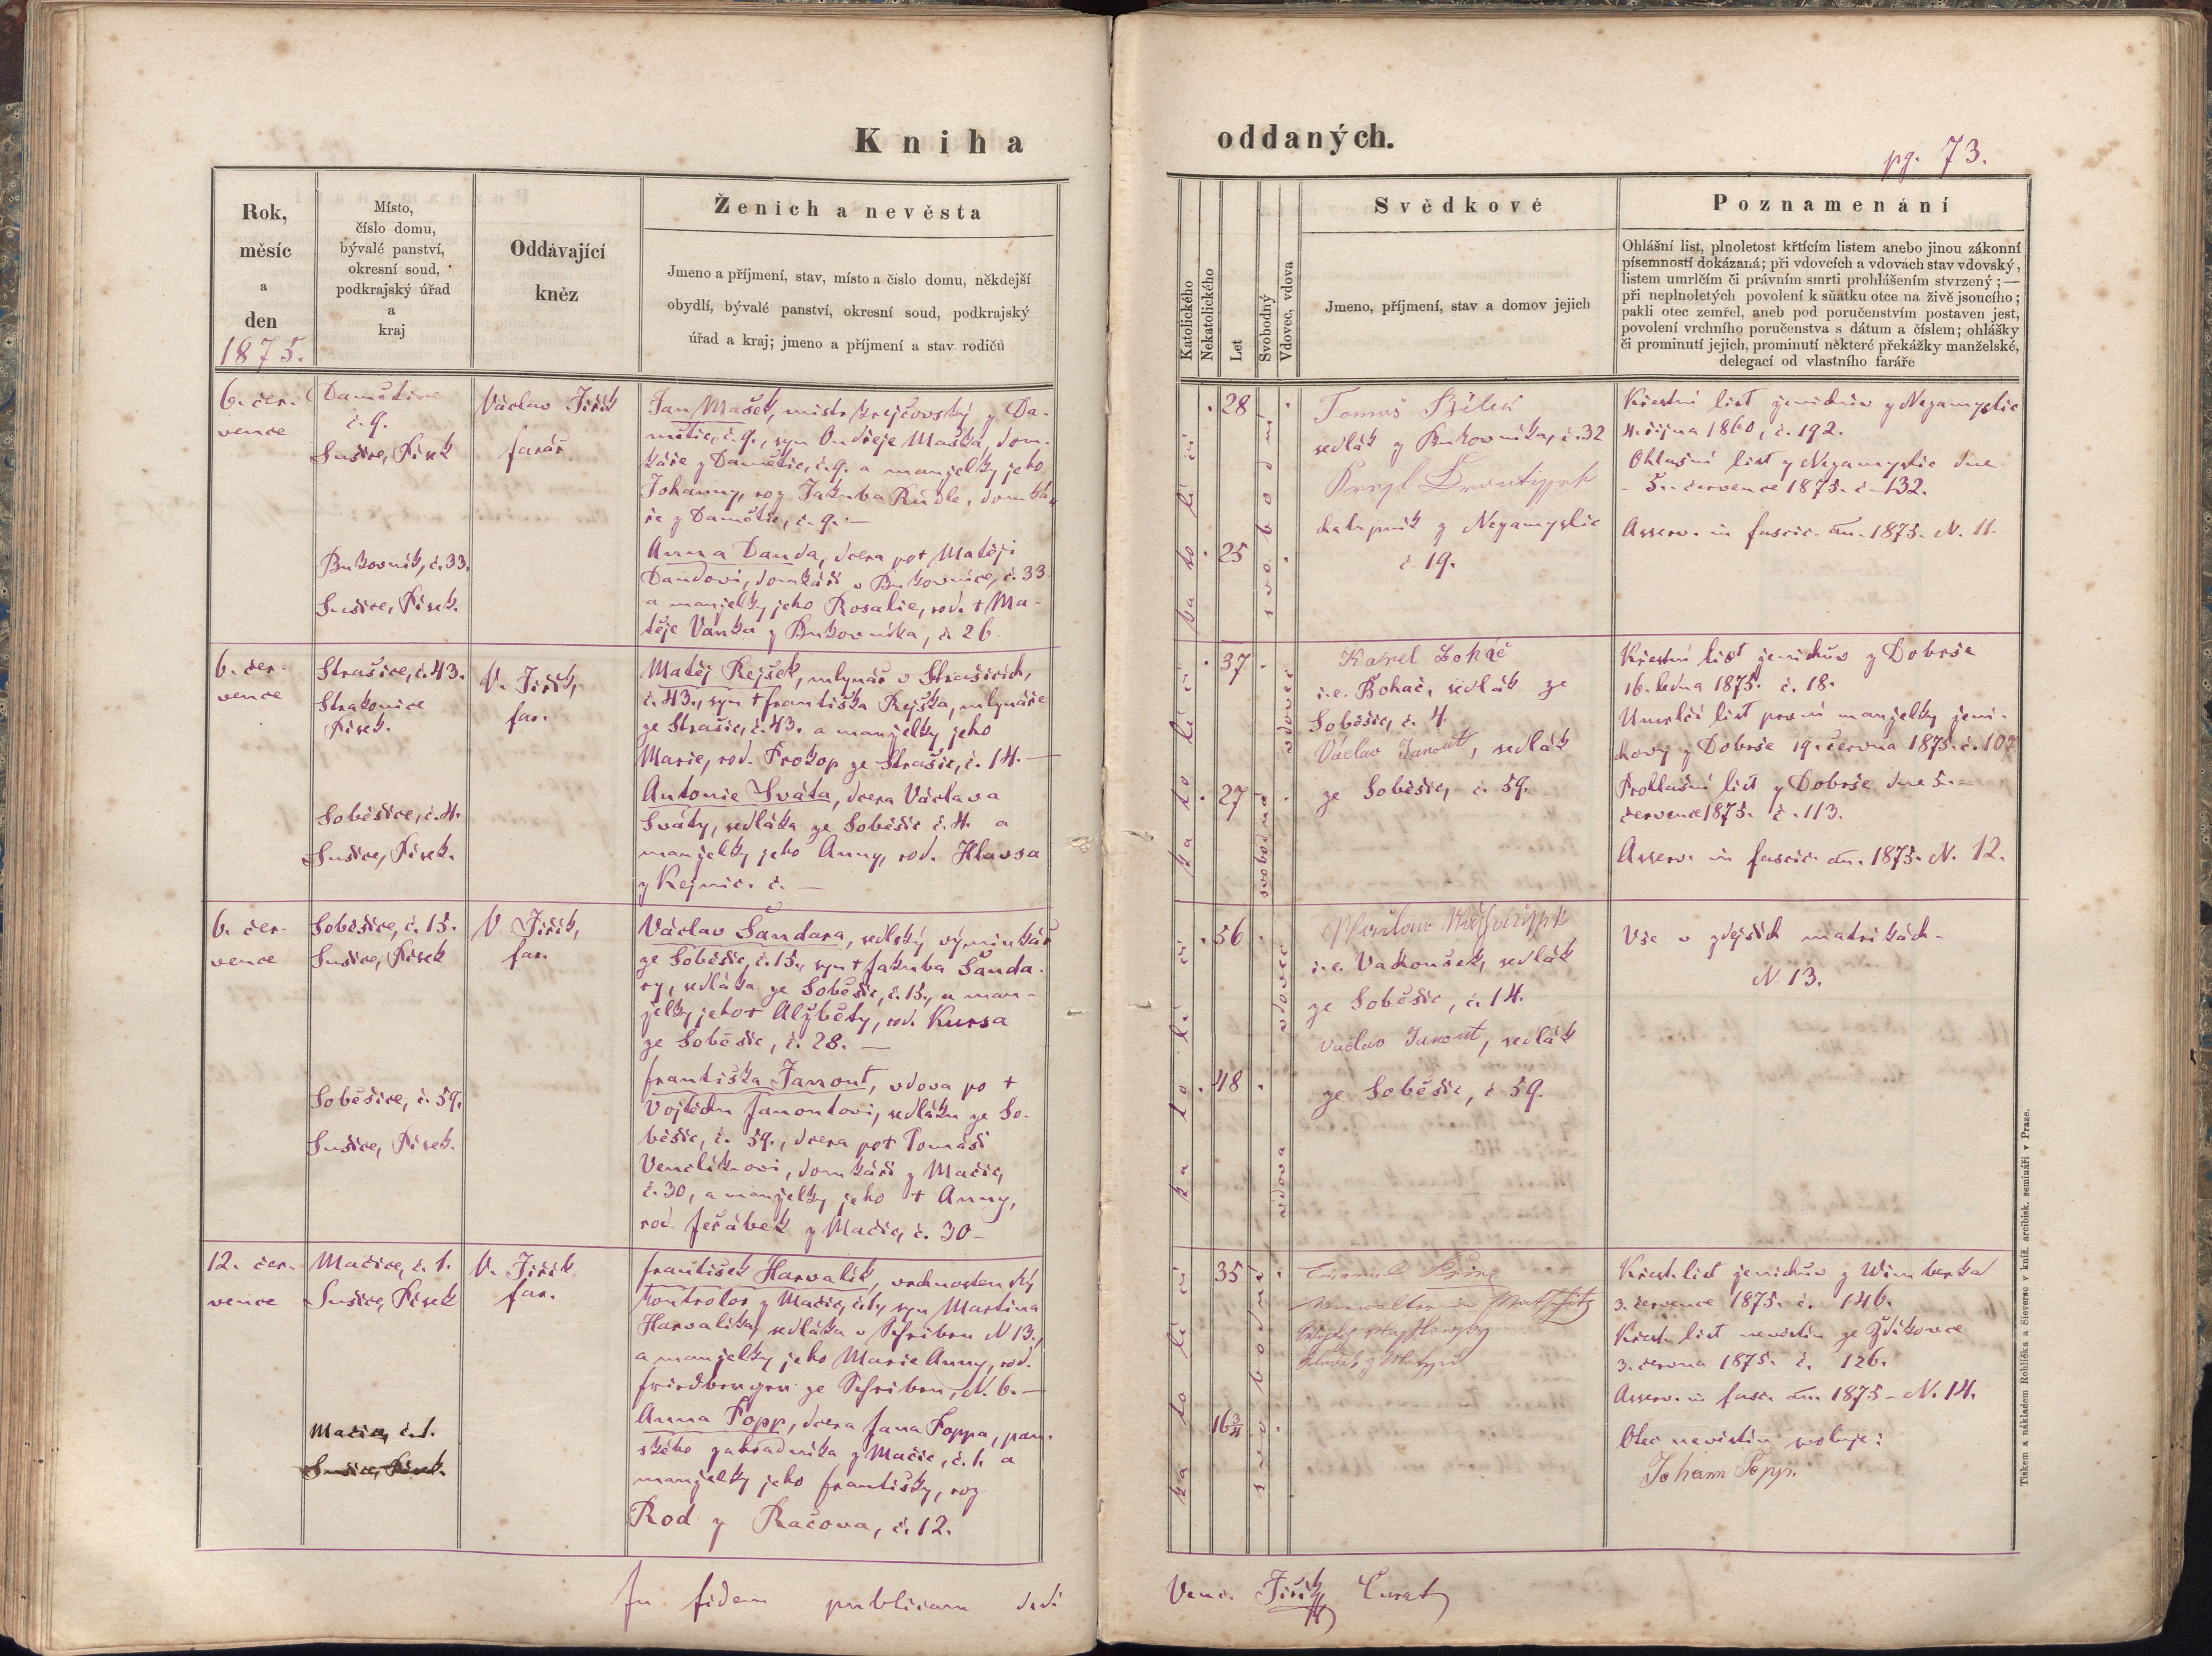 Kniha oddaných.
pg. 73.
Rok,
měsíc
a
den
1875.
Místo,
číslo domu,
bývalé panství,
okresní soud,
podkrajský úřad
a
kraj
Oddávající
kněz
Ženich a nevěsta
Jmeno a příjmení, stav, místo a číslo domu, někdejší
obydlí, bývalé panství, okresní soud, podkrajský
úřad a kraj; jmeno a příjmení a stav rodičů
Katolického
Nekatolického
Let
Svobodný
Vdovec, vdova
Svědkové
Jmeno, příjmení, stav a domov jejich
Poznamenání
Ohlášní list, plnoletost křtícím listem anebo jinou zákonní
písemností dokázaná; při vdovcích a vdovách stav vdovský,
listem umrlčím či právním smrti prohlášením stvrzený; —
při neplnoletých povolení k sňatku otce na živě jsoucího;
pakli otec zemřel, aneb pod poručenstvím postaven jest,
povolení vrchního poručenstva s dátum a číslem; ohlášky
či prominutí jejich, prominutí některé překážky manželské,
delegací od vlastního faráře
6. čer-
vence
Damětice
č. 9.
Sušice, Písek
Václav Jiřík
farář
Jan Mašek, mistr krejčovský z Da-
mětic, č. 9., syn Ondřeje Maška, dom-
káře z Damětic, č. 9. a manželky jeho
Johanny, roz. Jakuba Rudle, domká-
ře z Damětic, č. 9. —
Bukovník, č. 33.
Sušice, Písek.
Anna Danda, dcera po + Matěji
Dandovi, domkáři v Bukovníce, č. 33
a manželky jeho Rosalie, rod. + Ma-
těje Vaňka z Bukovníka, č. 26.
katolické
28
25
svobodní
Tomáš Bílek
sedlák z Bukovníka, č. 32
chalupník z Nezamyslic
č 19.
Křestní list ženichův z Nezamyslic
4. října 1860, č. 192.
Ohlašní list z Nezamyslic dne
5. července 1875. č. 132.
Asserv. in fascic. an. 1875. N. 11.
6. čer-
vence
Strašice, č. 43.
Strakonice
Písek.
V. Jiřík,
far.
Matěj Rejšek, mlynář v Strašicích,
č. 43., syn + Františka Rejška, mlynáře
ze Strašic, č. 43. a manželky jeho
Marie, rod. Prokop ze Strašic, č. 14. —
Soběšice, č. 4.
Sušice, Písek.
Antonie Sváta, dcera Václava
Sváty, sedláka ze Soběšic č. 4. a
manželky jeho Anny, rod. Hlavsa
z Kejnic. č. —
37
27
vdovec
svobodná
Karel Boháč
i.e. Boháč, sedlák ze
Soběšic, č. 4.
Václav Janout, sedlák
ze Soběšic, č. 59.
Křestní list ženichův z Dobrše
16. ledna 1875. č. 18.
Umrlčí list první manželky ženi-
chovy z Dobrše 19. června 1875. č. 107
Prohlašní list z Dobrše dne 5.
července 1875. č. 113.
Asserv. in fascic. an. 1875. N. 12.
6. čer-
vence
Soběšice, č. 15.
Sušice, Písek
V. Jiřík,
far.
Václav Šandara, sedlský výminkář
ze Soběšic, č. 15., syn + Jakuba Šanda-
ry, sedláka ze Soběšic, č. 15., a man-
želky jeho + Alžběty, rod. Kursa
ze Soběšic, č. 28. —
Soběšice, č. 59.
Sušice, Písek.
Františka Janout, vdova po +
Vojtěchu Janoutovi, sedláku ze So-
běšic, č. 59., dcera po + Tomáši
Venclíkovi, domkáři z Mačic,
č. 30, a manželky jeho + Anny,
rod. Jeřábek z Mačic, č. 30 —
56
48
vdovec
vdova
i.e. Vachoušek, sedlák
ze Soběšic, č. 14.
Václav Janout, sedlák
ze Soběšic, č 59.
Vše v zdejších matrikách.
N. 13.
12. čer-
vence
Mačice, č. 1.
Sušice, Písek
V. Jiřík
far.
František Harvalík, vrchnostenský
kontrolor z Mačic, č. 1., syn Martina
Harvalíka, sedláka v N 13.,
a manželky jeho Marie Anny, rod.
ze N. 6. —
Mačice, č. 1.
Sušice, Písek.
Anna Popp, dcera Jana Poppa, pan-
ského zahradníka z Mačic, č. 1. a
manželky jeho Františky, roz.
Rod z Račova, č. 12.
35
16 3/4
svobodní
Verwalter in Matschitz
Křest. list ženichův z Wimberka
3. července 1875. č. 146.
Křest. list nevěstin ze Zdíkovce
3. června 1875. č. 126.
Asserv. in fasc. an. 1875 - N. 14.
Otec nevěstin svoluje:
Johann Popp.
In fidem publicam dedi
Venc. Jiřík, Curat
Tiskem a nákladem Rohlíčka a Sieversa v kníž. arcibisk. semináři v Praze.